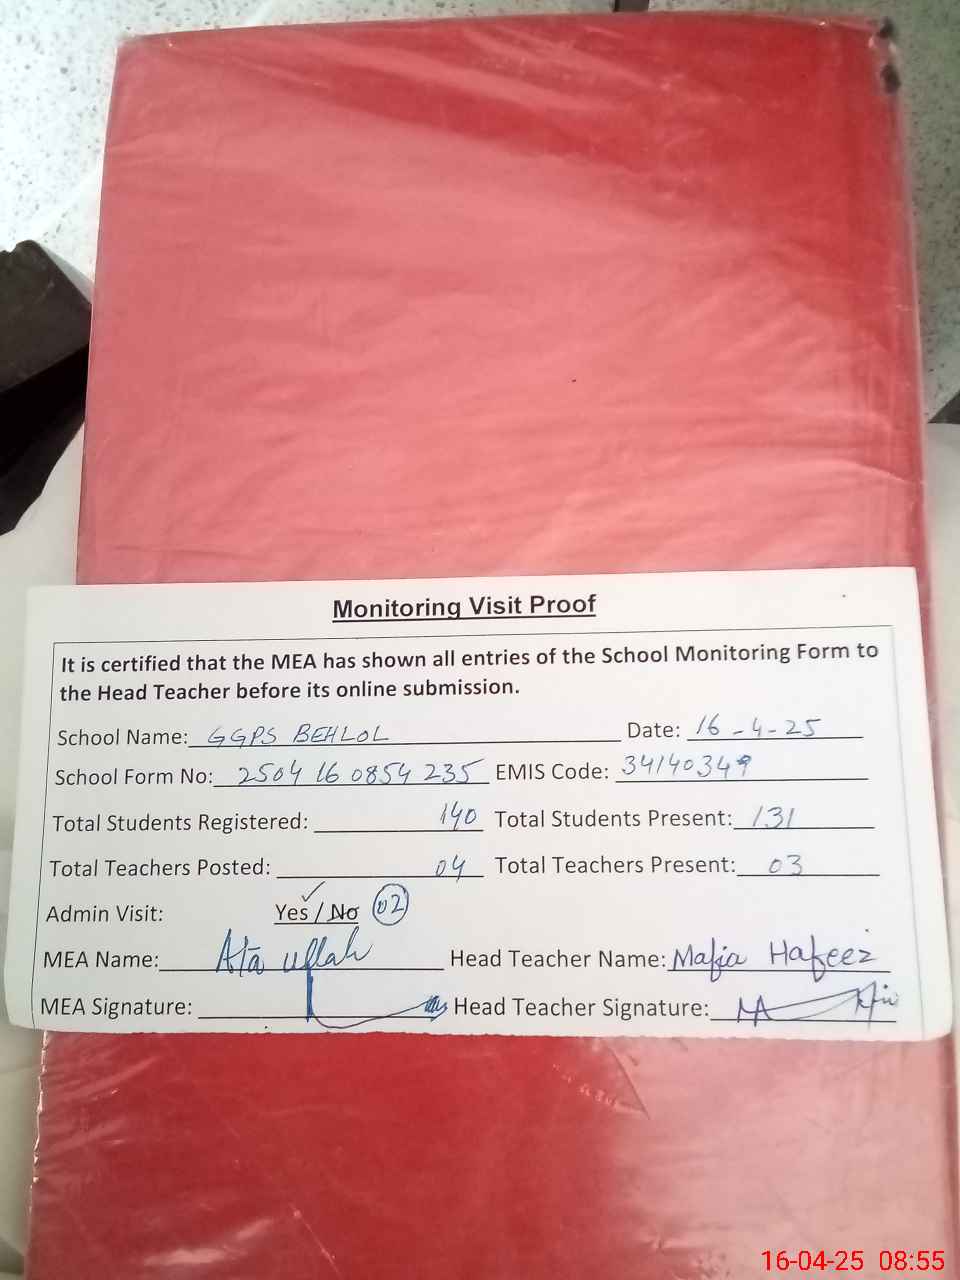 Monitoring Visit Proof
It is certified that the MEA has shown all entries of the School Monitoring Form to
the Head Teacher before its online submission.
School Name: GGPS BEHLOL Date: 16-4-25
School Form No: 2504 16 0854 235 EMIS Code: 34140349
Total Students Registered: 140 Total Students Present: 131
Total Teachers Posted: 04 Total Teachers Present: 03
Admin Visit: Yes / No 02
MEA Name: Ata ullah Head Teacher Name: Mafia Hafeez
MEA Signature: Head Teacher Signature:
16-04-25 08:55